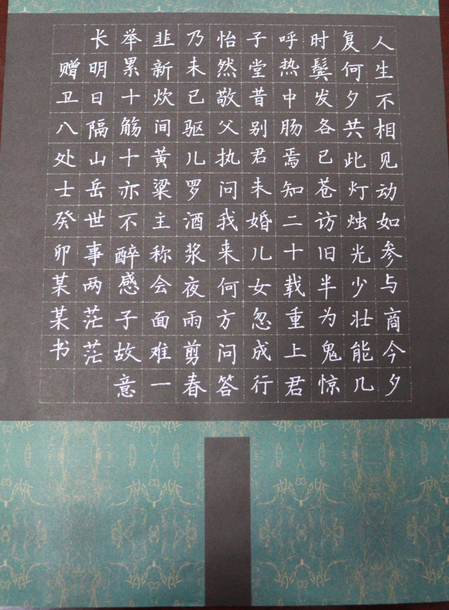 人生不相见动如参与商今夕
复何夕共此灯烛光少壮能几
时鬓发各已苍访旧半为鬼惊
呼热中肠焉知二十载重上君
子堂昔别君未婚儿女忽成行
怡然敬父执问我来何方问答
乃未已驱儿罗酒浆夜雨剪春
韭新炊间黄粱主称会面难一
举累十觞十亦不醉感子故意
长明日隔山岳世事两茫茫
赠卫八处士癸卯某某书